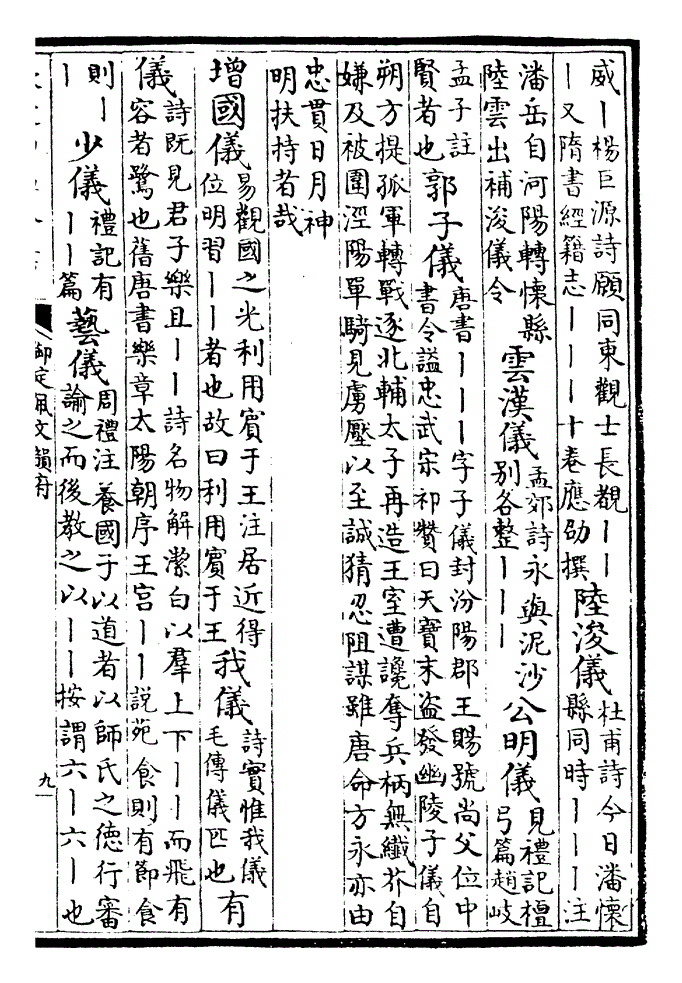 威｜楊巨源詩願同東觀士長觀｜｜
｜又隋書經籍志｜｜｜十卷應劭撰
陸浚儀
杜甫詩今日潘懷
縣同時｜｜｜注
潘岳自河陽轉懷縣
陸雲出補浚儀令
雲漢儀
孟郊詩永與泥沙
別各整｜｜｜
公明儀
見禮記檀
弓篇趙岐
孟子註
賢者也
郭子儀
唐書｜｜｜字子儀封汾陽郡王賜號尚父位中
書令諡忠武宋祁贊曰天寶末盜發幽陵子儀自
朔方提孤軍轉戰逐北輔太子再造王室遭讒奪兵柄無纖芥自
嫌及被圍涇陽單騎見虜壓以至誠猜忍阻謀雖唐命方永亦由
忠貫日月神
明扶持者哉
增
國儀
易觀國之光利用賓于王注居近得
位明習｜｜者也故曰利用賓于王
我儀
詩實惟我儀
毛傳儀匹也
有
儀
詩既見君子樂且｜｜詩名物解潔白以羣上下｜｜而飛有
容者鷺也舊唐書樂章太陽朝序王宮｜｜說苑食則有節食
則｜
｜
少儀
禮記有
｜｜篇
藝儀
周禮注養國子以道者以師氏之徳行審
論之而後教之以｜｜按謂六｜六｜也
御定佩文韻府
九